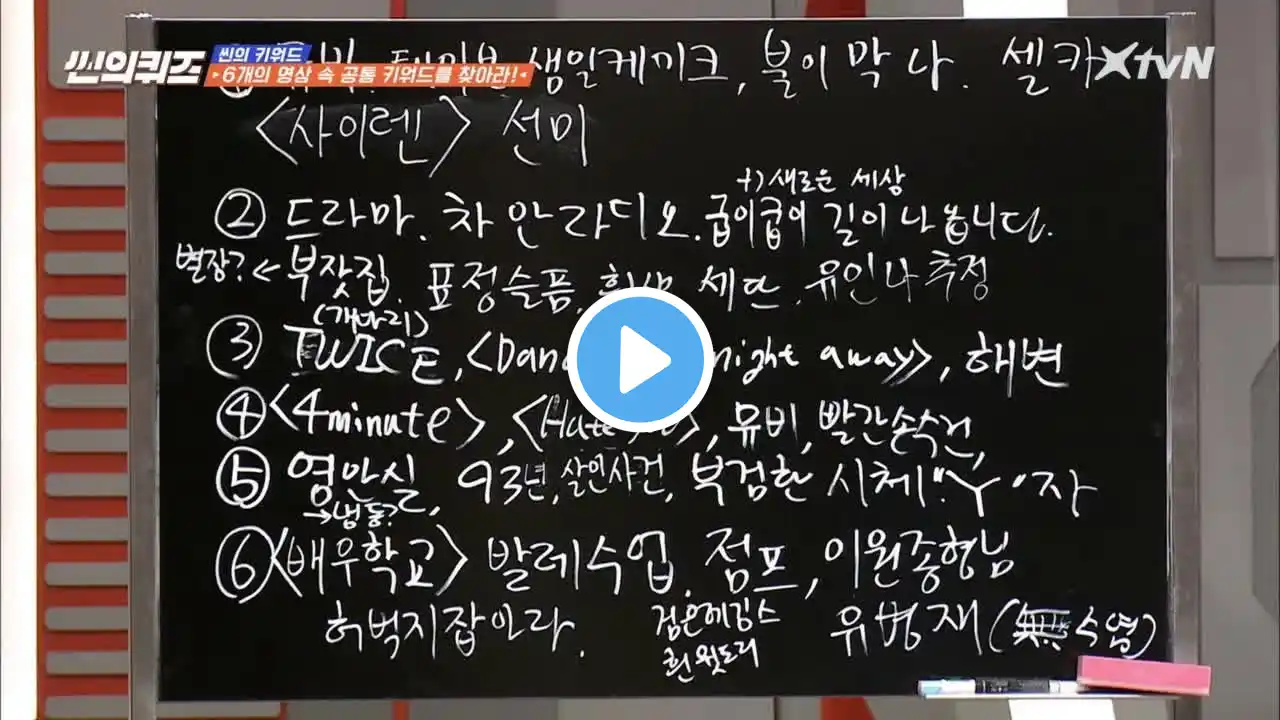 씬의퀴즈
씬의 키워드
▸6개의 영상 속 공통 키워드를 찾아라!◂
XtvN
생일케이크, 불이 막 나. 셀카
<사이렌> 선미
+)새로운 세상
② 드라마. 차 안 라디오. 굽이굽이 길이 나옵니다.
별장? ← 부잣집. 표정슬픔, 세단. 유인나 추정
③ TWICE, <Dan night away>, 해변
④ <4minute>, <Hate >, 뮤비, 빨간손수건,
⑤ 영안실, 93년, 살인사건, 부검한 시체 "Y"자
→냉동?
⑥ <배우학교> 발레수업. 점프, 이원종형님
허벅지잡아라. 유병재 (無 수염)
검은레깅스
흰 윗도리